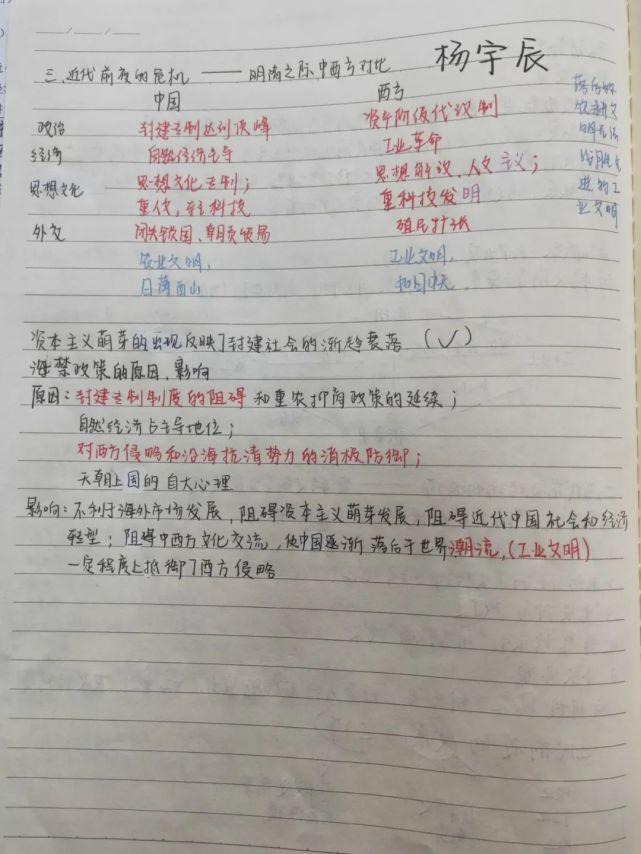 杨宇辰
三、近代前夜的危机 —— 明清之际中西方对比
中国 西方
政治 封建专制达到顶峰 资产阶级代议制
经济 自然经济主导 工业革命
思想文化 思想文化专制; 思想解放、人文主义;
重人伦,轻科技 重科技发明
外交 闭关锁国、朝贡贸易 殖民扩张
农业文明, 工业文明,
日薄西山 如日中天
落后的
农耕文
明无法
战胜先
进的工
业文明
资本主义萌芽的出现反映了封建社会的渐趋衰落 (√)
海禁政策的原因、影响
原因:封建专制制度的阻碍和重农抑商政策的延续;
自然经济占主导地位;
对西方侵略和沿海抗清势力的消极防御;
天朝上国的自大心理
影响:不利于海外市场发展,阻碍资本主义萌芽发展,阻碍近代中国社会和经济
转型;阻碍中西方文化交流,使中国逐渐落后于世界潮流,(工业文明)
一定程度上抵御了西方侵略